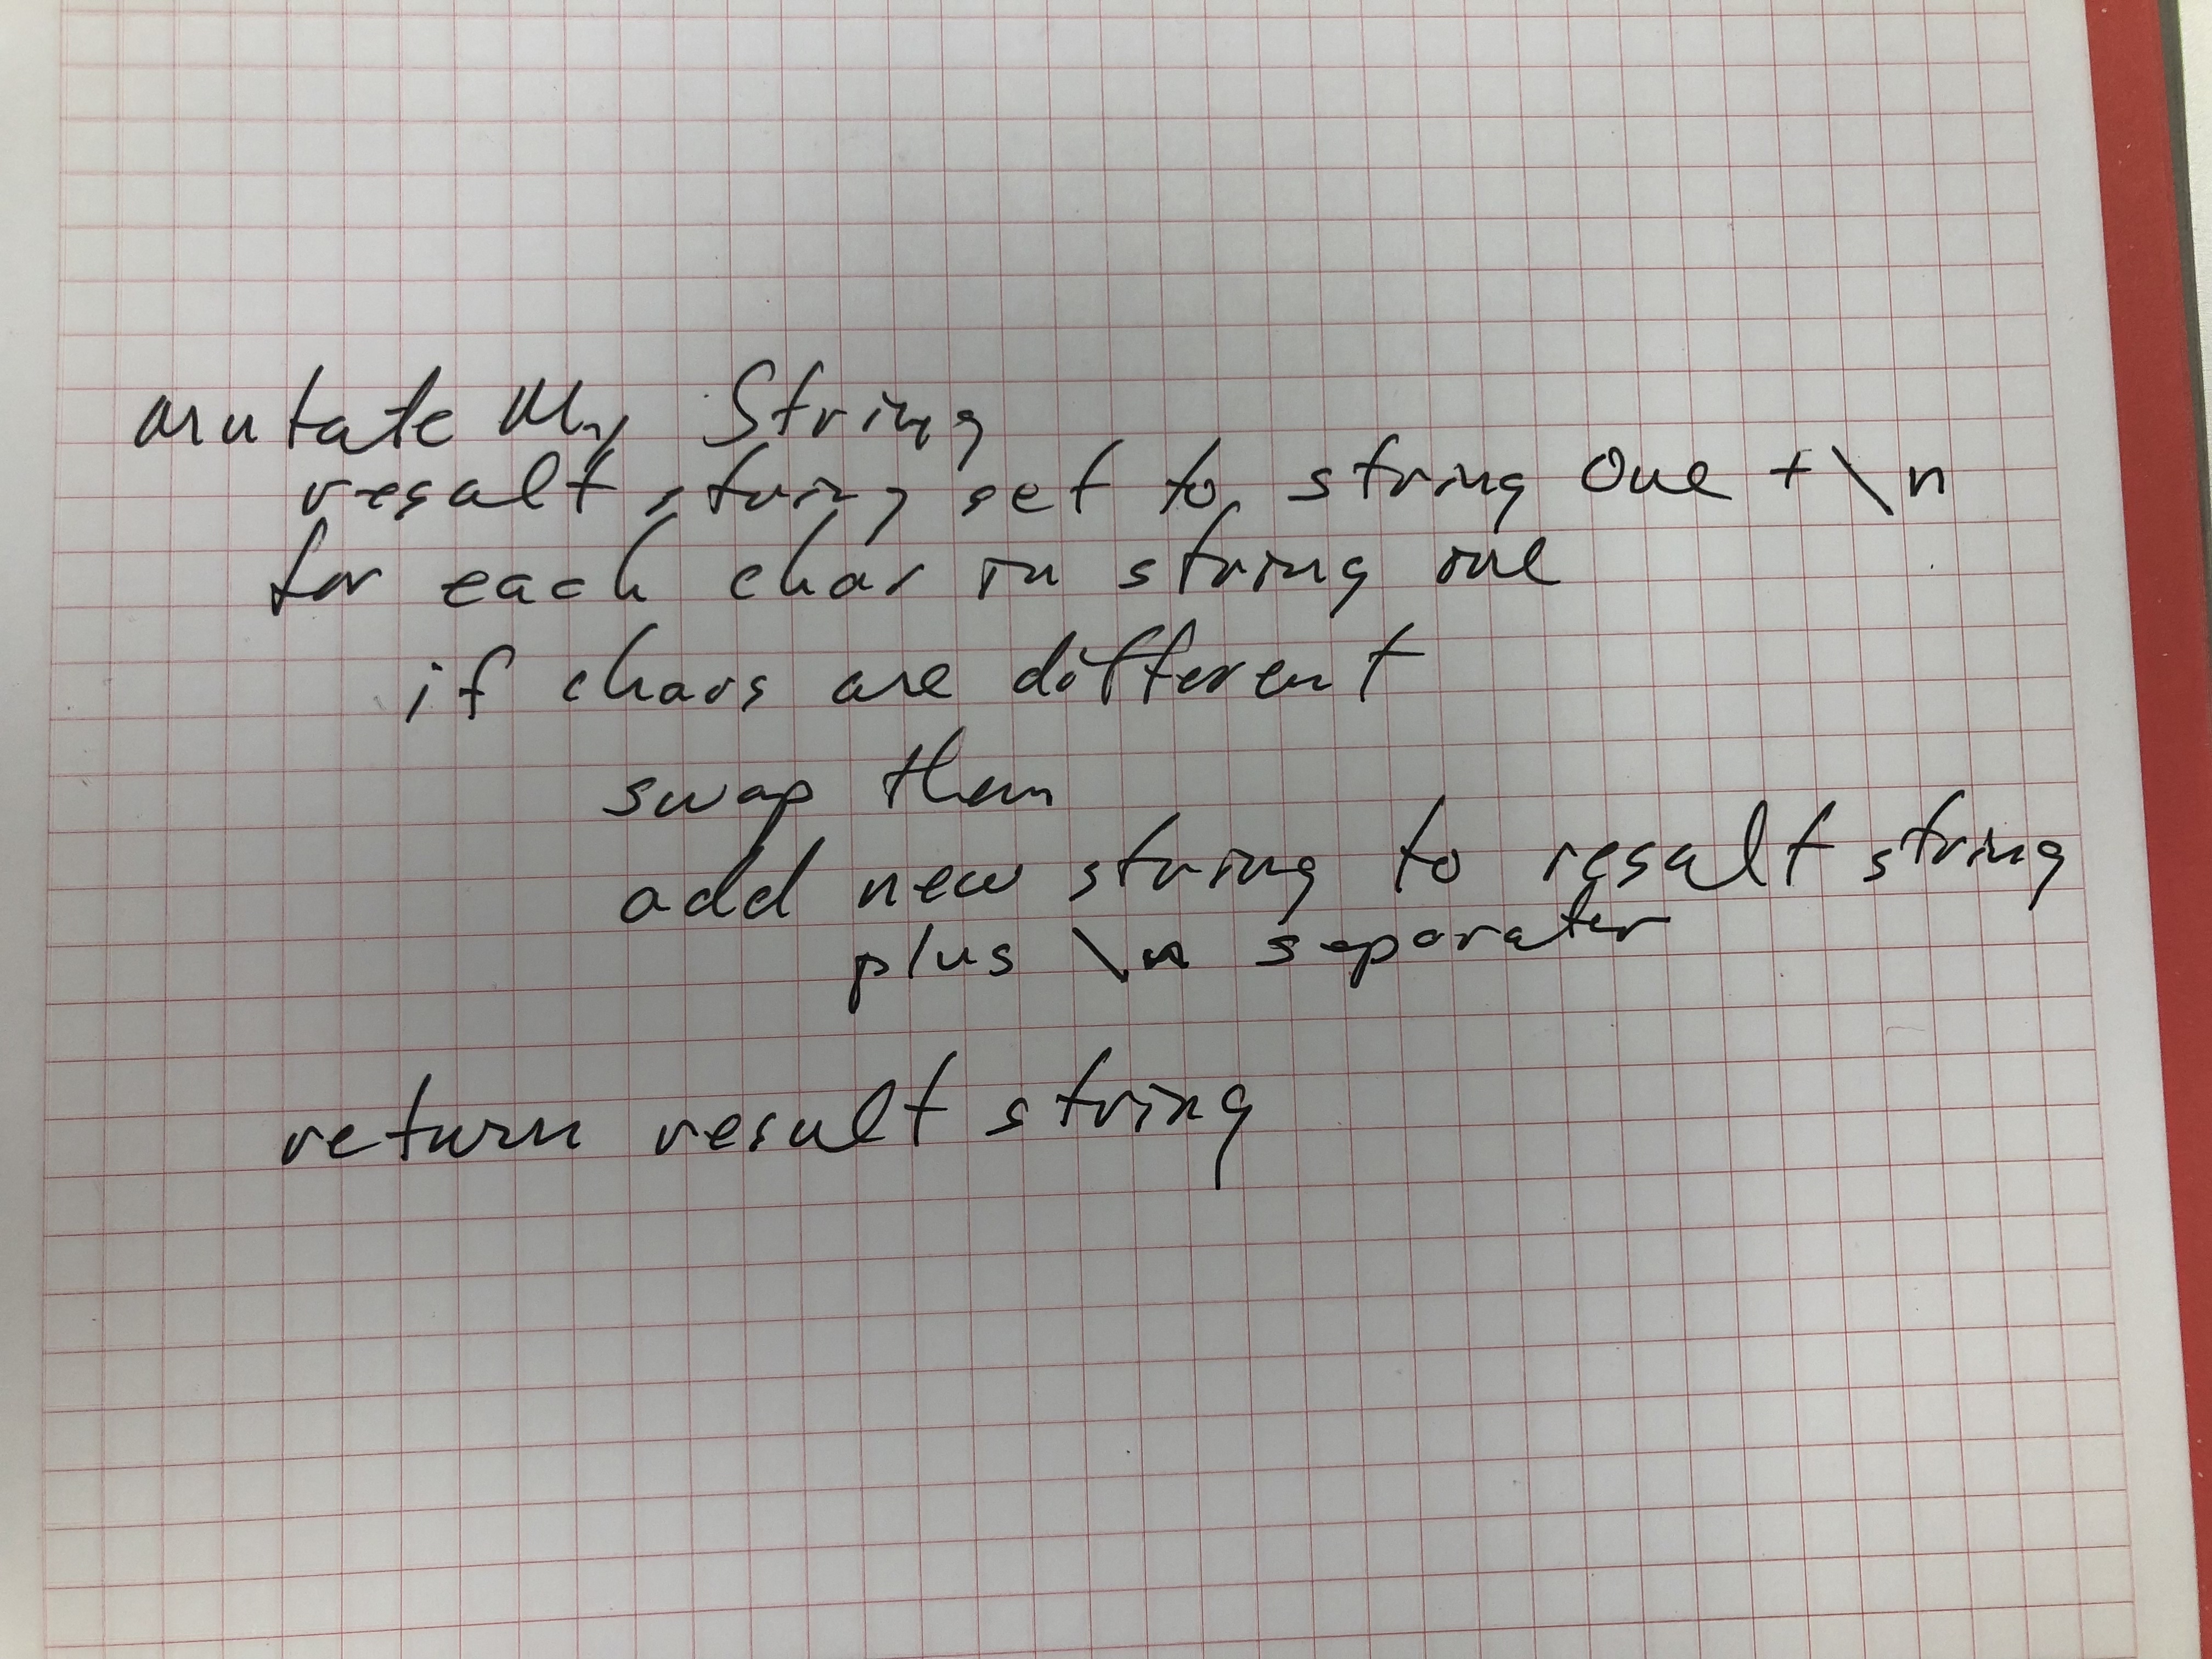 mutate My String
resalt string set to string one + \n
for each char in string one
if chars are different
swap them
add new string to resalt string
plus \n separater
return result string